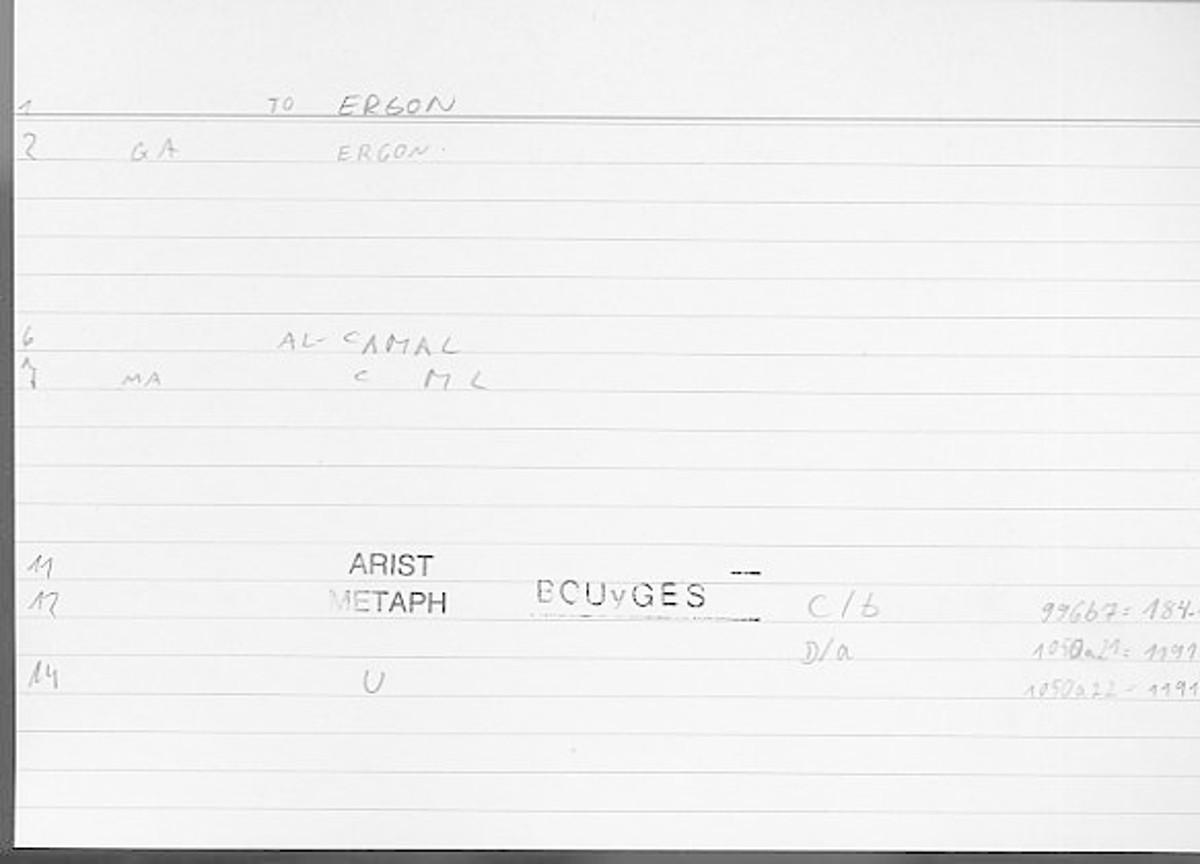 1 TO ERGON
2 GA ERGON.
6 AL-CAMAL
7 MA C M L
11 ARIST
12 METAPH BOUyGES C/b 996b7= 184-
D/a 1050a21= 1191
14 U 1050a22= 1191